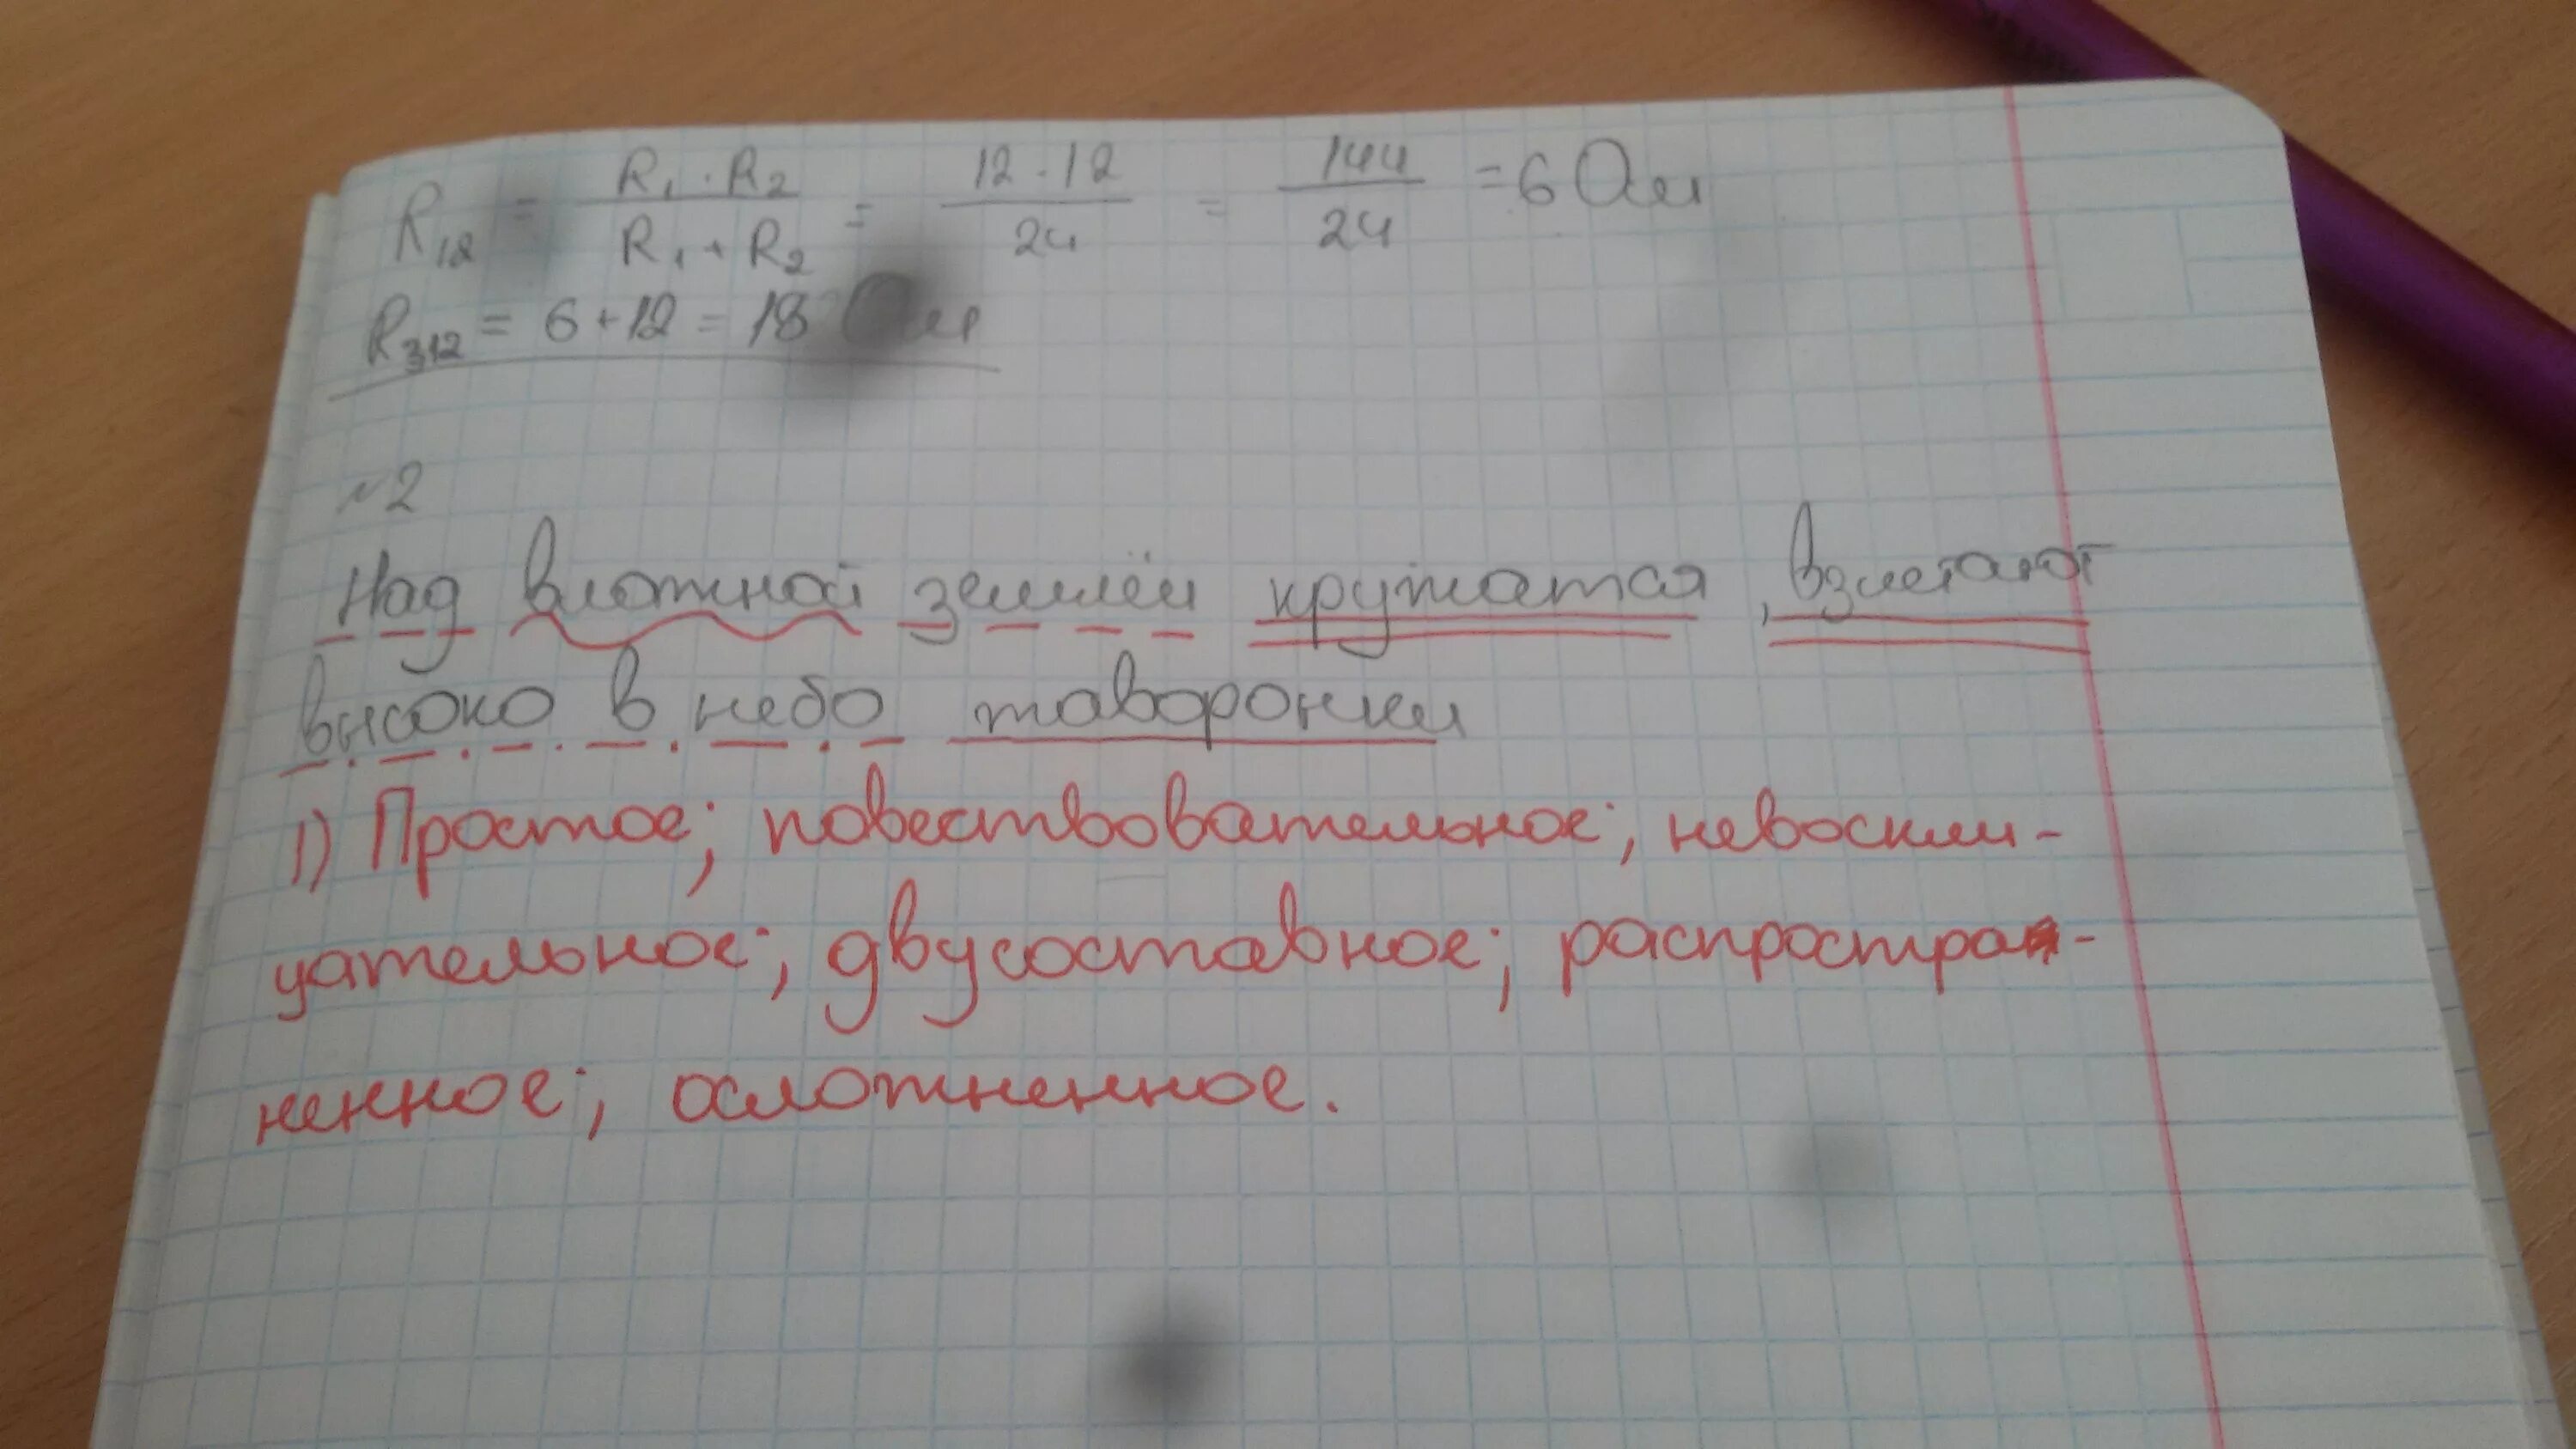 R₁₂ = R₁ · R₂ / R₁ + R₂ = 12 · 12 / 24 = 144 / 24 = 6 Ом
R₃₁₂ = 6 + 12 = 18 Ом
№2
Над влажной землёй кружатся, взлетают
высоко в небо жаворонки
1) Простое; повествовательное; невоскли-
цательное; двусоставное; распростра-
ненное; осложненное.